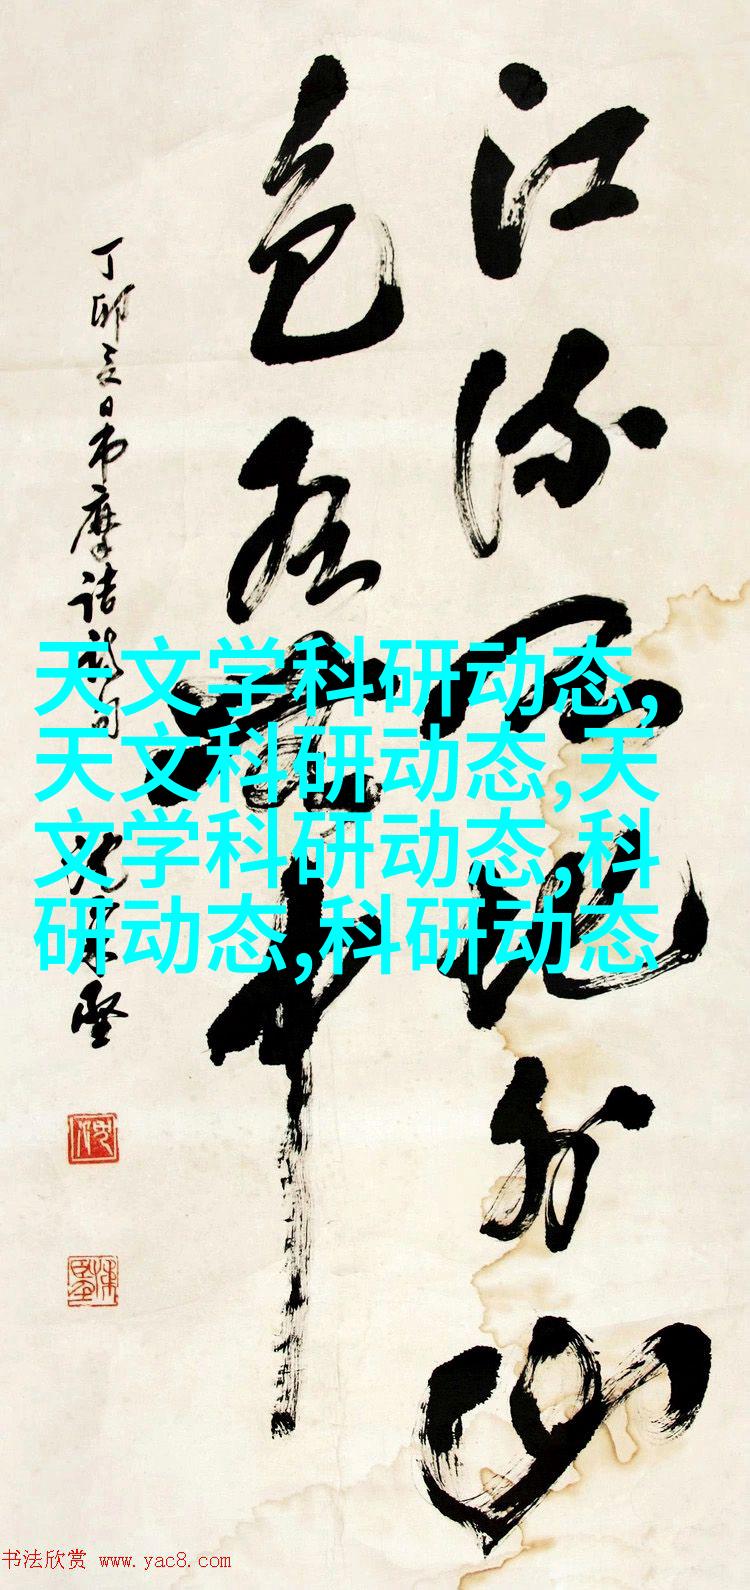 江流天地外山
色有無中
丁卯夏日书摩诘诗句
天文学科研动态,
天文科研动态,天
文学科研动态,科
研动态,科研动态
书法欣赏 www.yac8.com